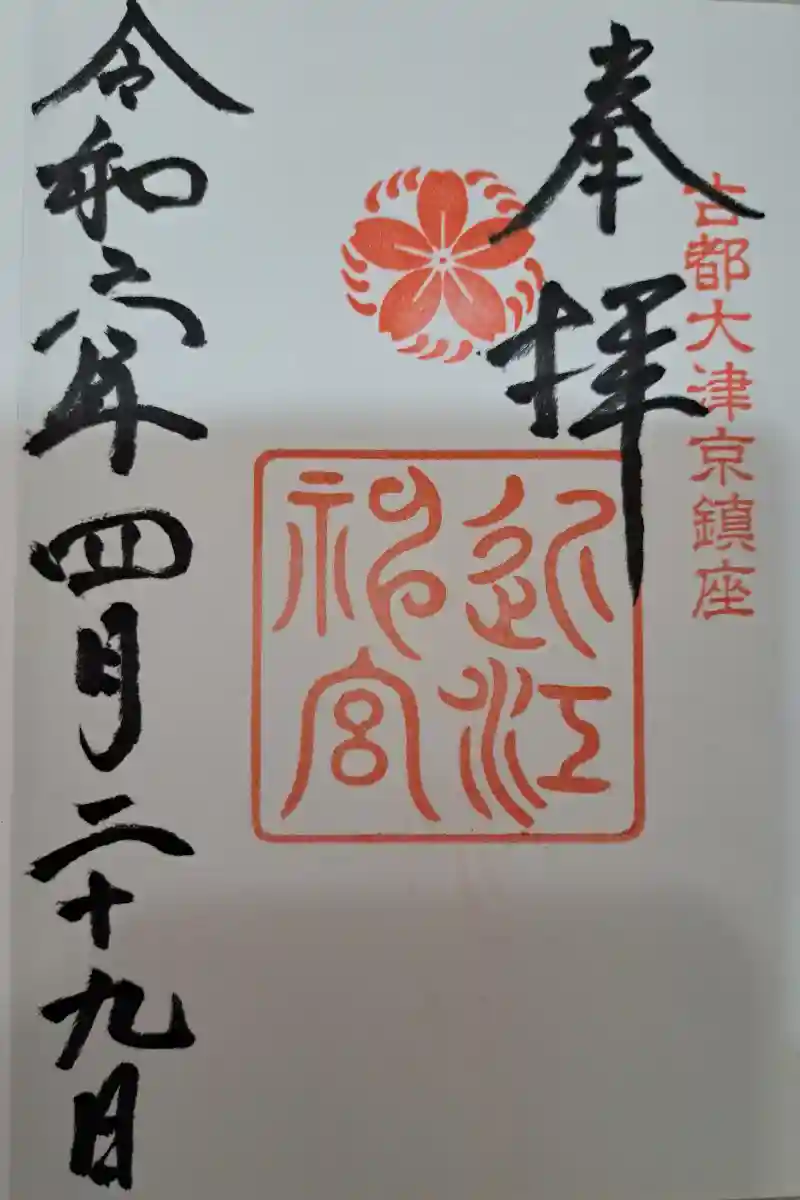 古都大津京鎮座
奉拝
近江
神宮
令和六年四月二十九日